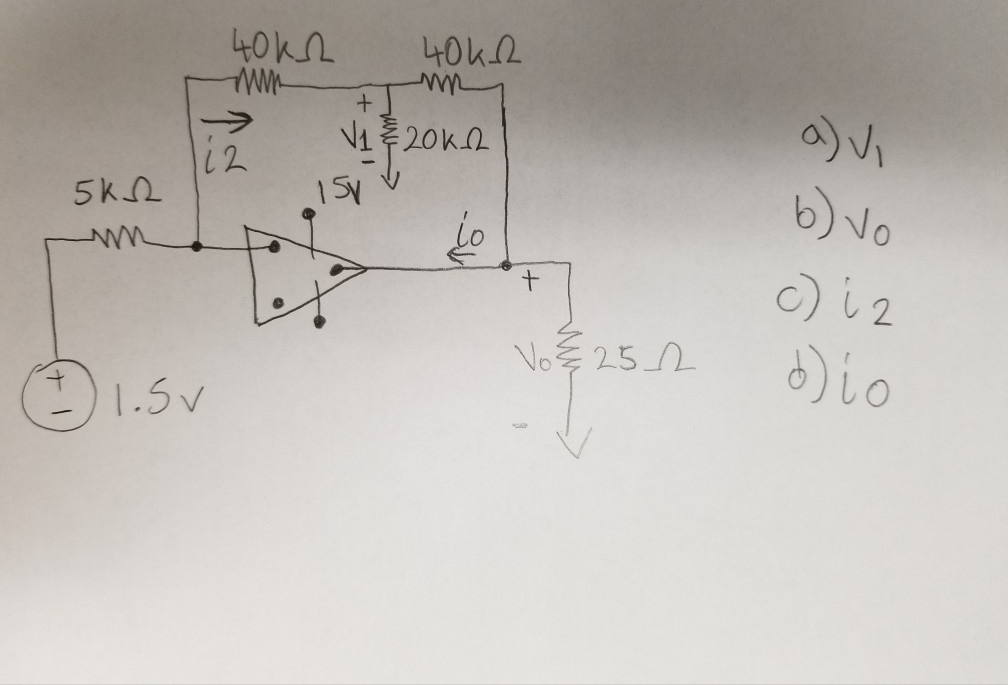 40kΩ 40kΩ
+
i2 V1 20kΩ
-
5kΩ 15v
io
+
Vo 25Ω
+
- 1.5v
-
a) V1
b) Vo
c) i2
d) io